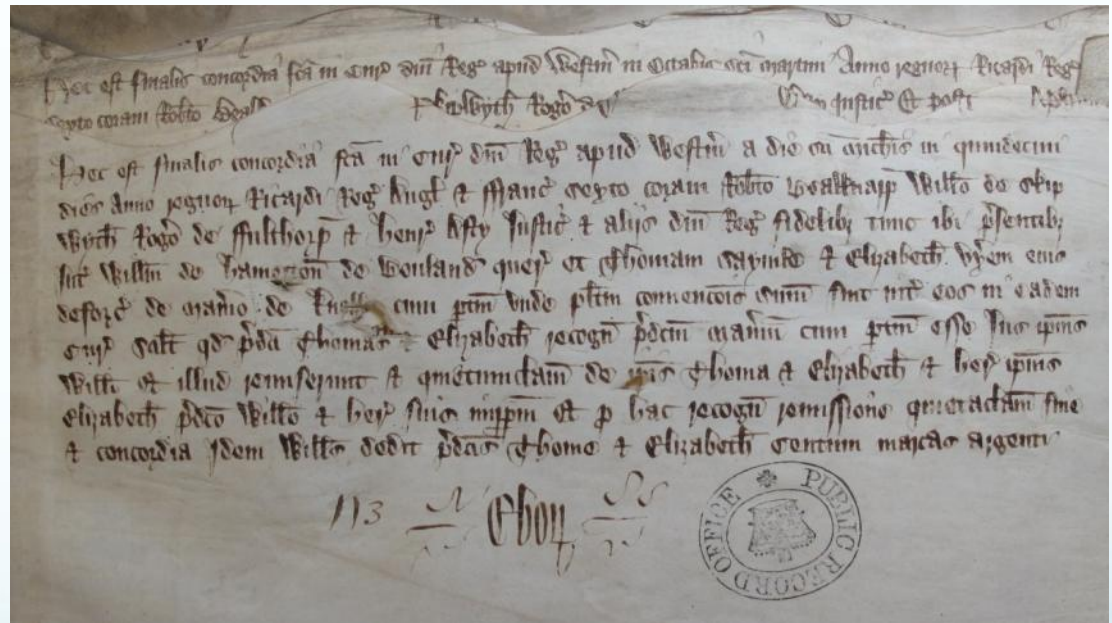 Hec est finalis concordia fcã in Cur̃ dñi Reg̃ apud Westm̃ in Octabis sci martini Anno regnoꝝ Ricardi Reg̃
sexto coram Rob̃to Wyth̃ Rog̃o Justic̃ Et post
Hec est finalis concordia fcã in Cur̃ dñi Reg̃ apud Westm̃ a die sc̃i Mich̃is in quindecim
dies Anno regnoꝝ Ricardi Reg̃ Angl̃ & Franc̃ sexto coram Rob̃to Bealknapp̃ Will̃o de Skip
wyth̃ Rog̃o de ffulthorp̃ & Henr̃ Asty Justic̃ & aliis dñi Reg̃ fidelibȝ tunc ibi p̃sentibȝ
Int̃ Will̃m de de Bouland quer̃ et Thomam & Elizabeth̃ vx̃em eius
deforc̃ de man̂io de cum ptin̂ vnde pl̃itm convenc̃onis sum̃ fuit int̃ eos in eadem
Cur̃ Scilt̃ qd̃ p̃dc̃i Thomas & Elizabeth̃ recogñ p̃dc̃m Man̂ium cum ptiñ esse Jus ip̃ius
Will̃i et illud remiserunt & quietumclam̃ de ip̃is Thoma & Elizabeth̃ & her̃ ip̃ius
Elizabeth̃ p̃dc̃o Will̃o & her̃ suis imp̃pm̃ Et p hac recogñ remissione quietaclam̃ fine
& concordia Idem Will̃s dedit p̃dc̃is Thome & Elizabeth̃ Centum marcas argenti
113 Eboꝝ
PUBLIC RECORD OFFICE